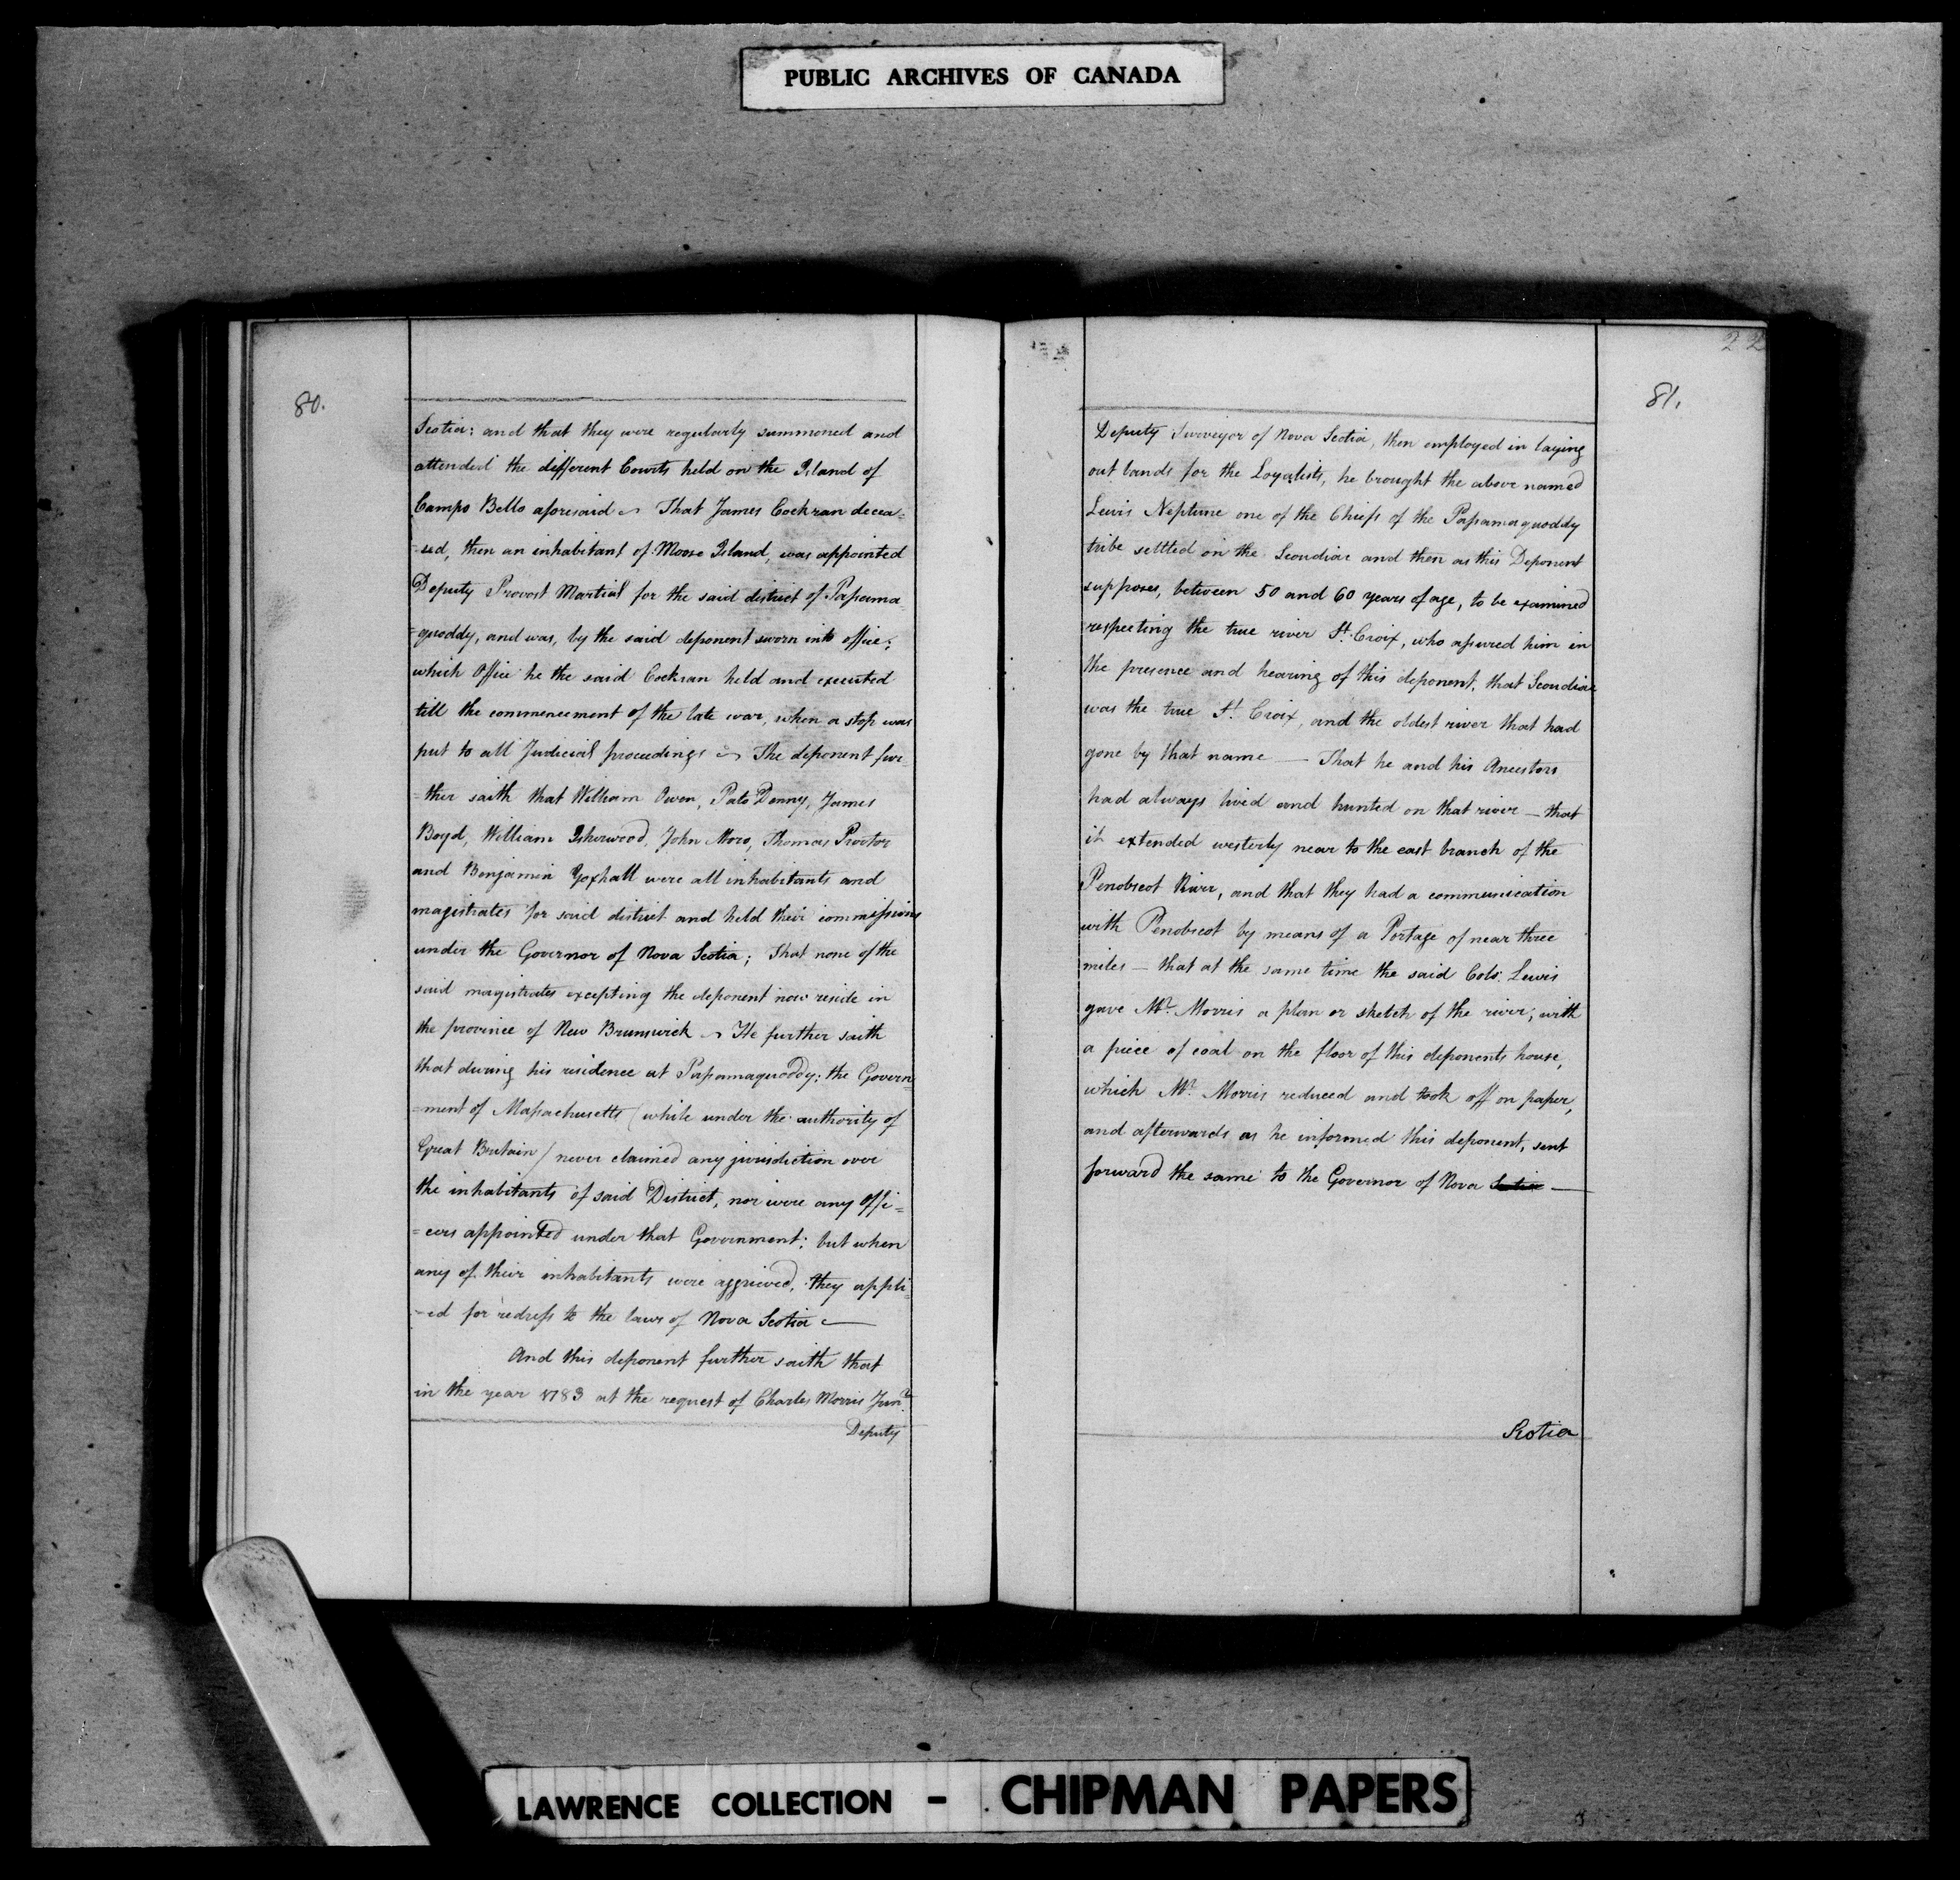 PUBLIC ARCHIVES OF CANADA
80.
Scotia: and that they were regularly summoned and
attended the different Courts held on the Island of
Campo Bello aforesaid ~ That James Cockran decea=
=sed, then an inhabitant of Moose Island, was appointed
Deputy Provost Martial for the said district of Passama
=quoddy, and was, by the said deponent sworn into office;
which Office he the said Cockran held and executed
till the commencement of the late war, when a stop was
put to all Judicial proceedings ~ The deponent fur
=ther saith that William Owen, Plato Denny, James
Boyd, William Isherwood, John Moro, Thomas Proctor
and Benjamin Yoxhall were all inhabitants and
magistrates for said district and held their commissions
under the Governor of Nova Scotia; That none of the
said magistrates excepting the deponent now reside in
the province of New Brunswick ~ He further saith
that during his residence at Passamaquoddy; the Govern=
=ment of Massachusetts (while under the authority of
Great Britain) never claimed any jurisdiction over
the inhabitants of said District, nor were any Offi=
=cers appointed under that Government; but when
any of their inhabitants were aggrieved, they appli=
=ed for redress to the laws of Nova Scotia —
And this deponent further saith that
in the year 1783 at the request of Charles Morris Junr.
Deputy
22
81.
Deputy Surveyor of Nova Scotia, then employed in laying
out lands for the Loyalists, he brought the above named
Lewis Neptune one of the Chiefs of the Passamaquoddy
tribe settled on the Scoudiac and then as this Deponent
supposes, between 50 and 60 years of age, to be examined
respecting the true river St. Croix, who assured him in
the presence and hearing of this deponent, that Scoudiac
was the true St. Croix, and the oldest river that had
gone by that name — That he and his Ancestors
had always lived and hunted on that river — that
it extended westerly near to the east branch of the
Penobscot River, and that they had a communication
with Penobscot by means of a Portage of near three
miles — that at the same time the said Colo. Lewis
gave Mr. Morris a plan or sketch of the river, with
a piece of coal on the floor of this deponents house,
which Mr. Morris reduced and took off on paper,
and afterwards as he informed this deponent, sent
forward the same to the Governor of Nova Scotia —
Scotia
LAWRENCE COLLECTION - CHIPMAN PAPERS